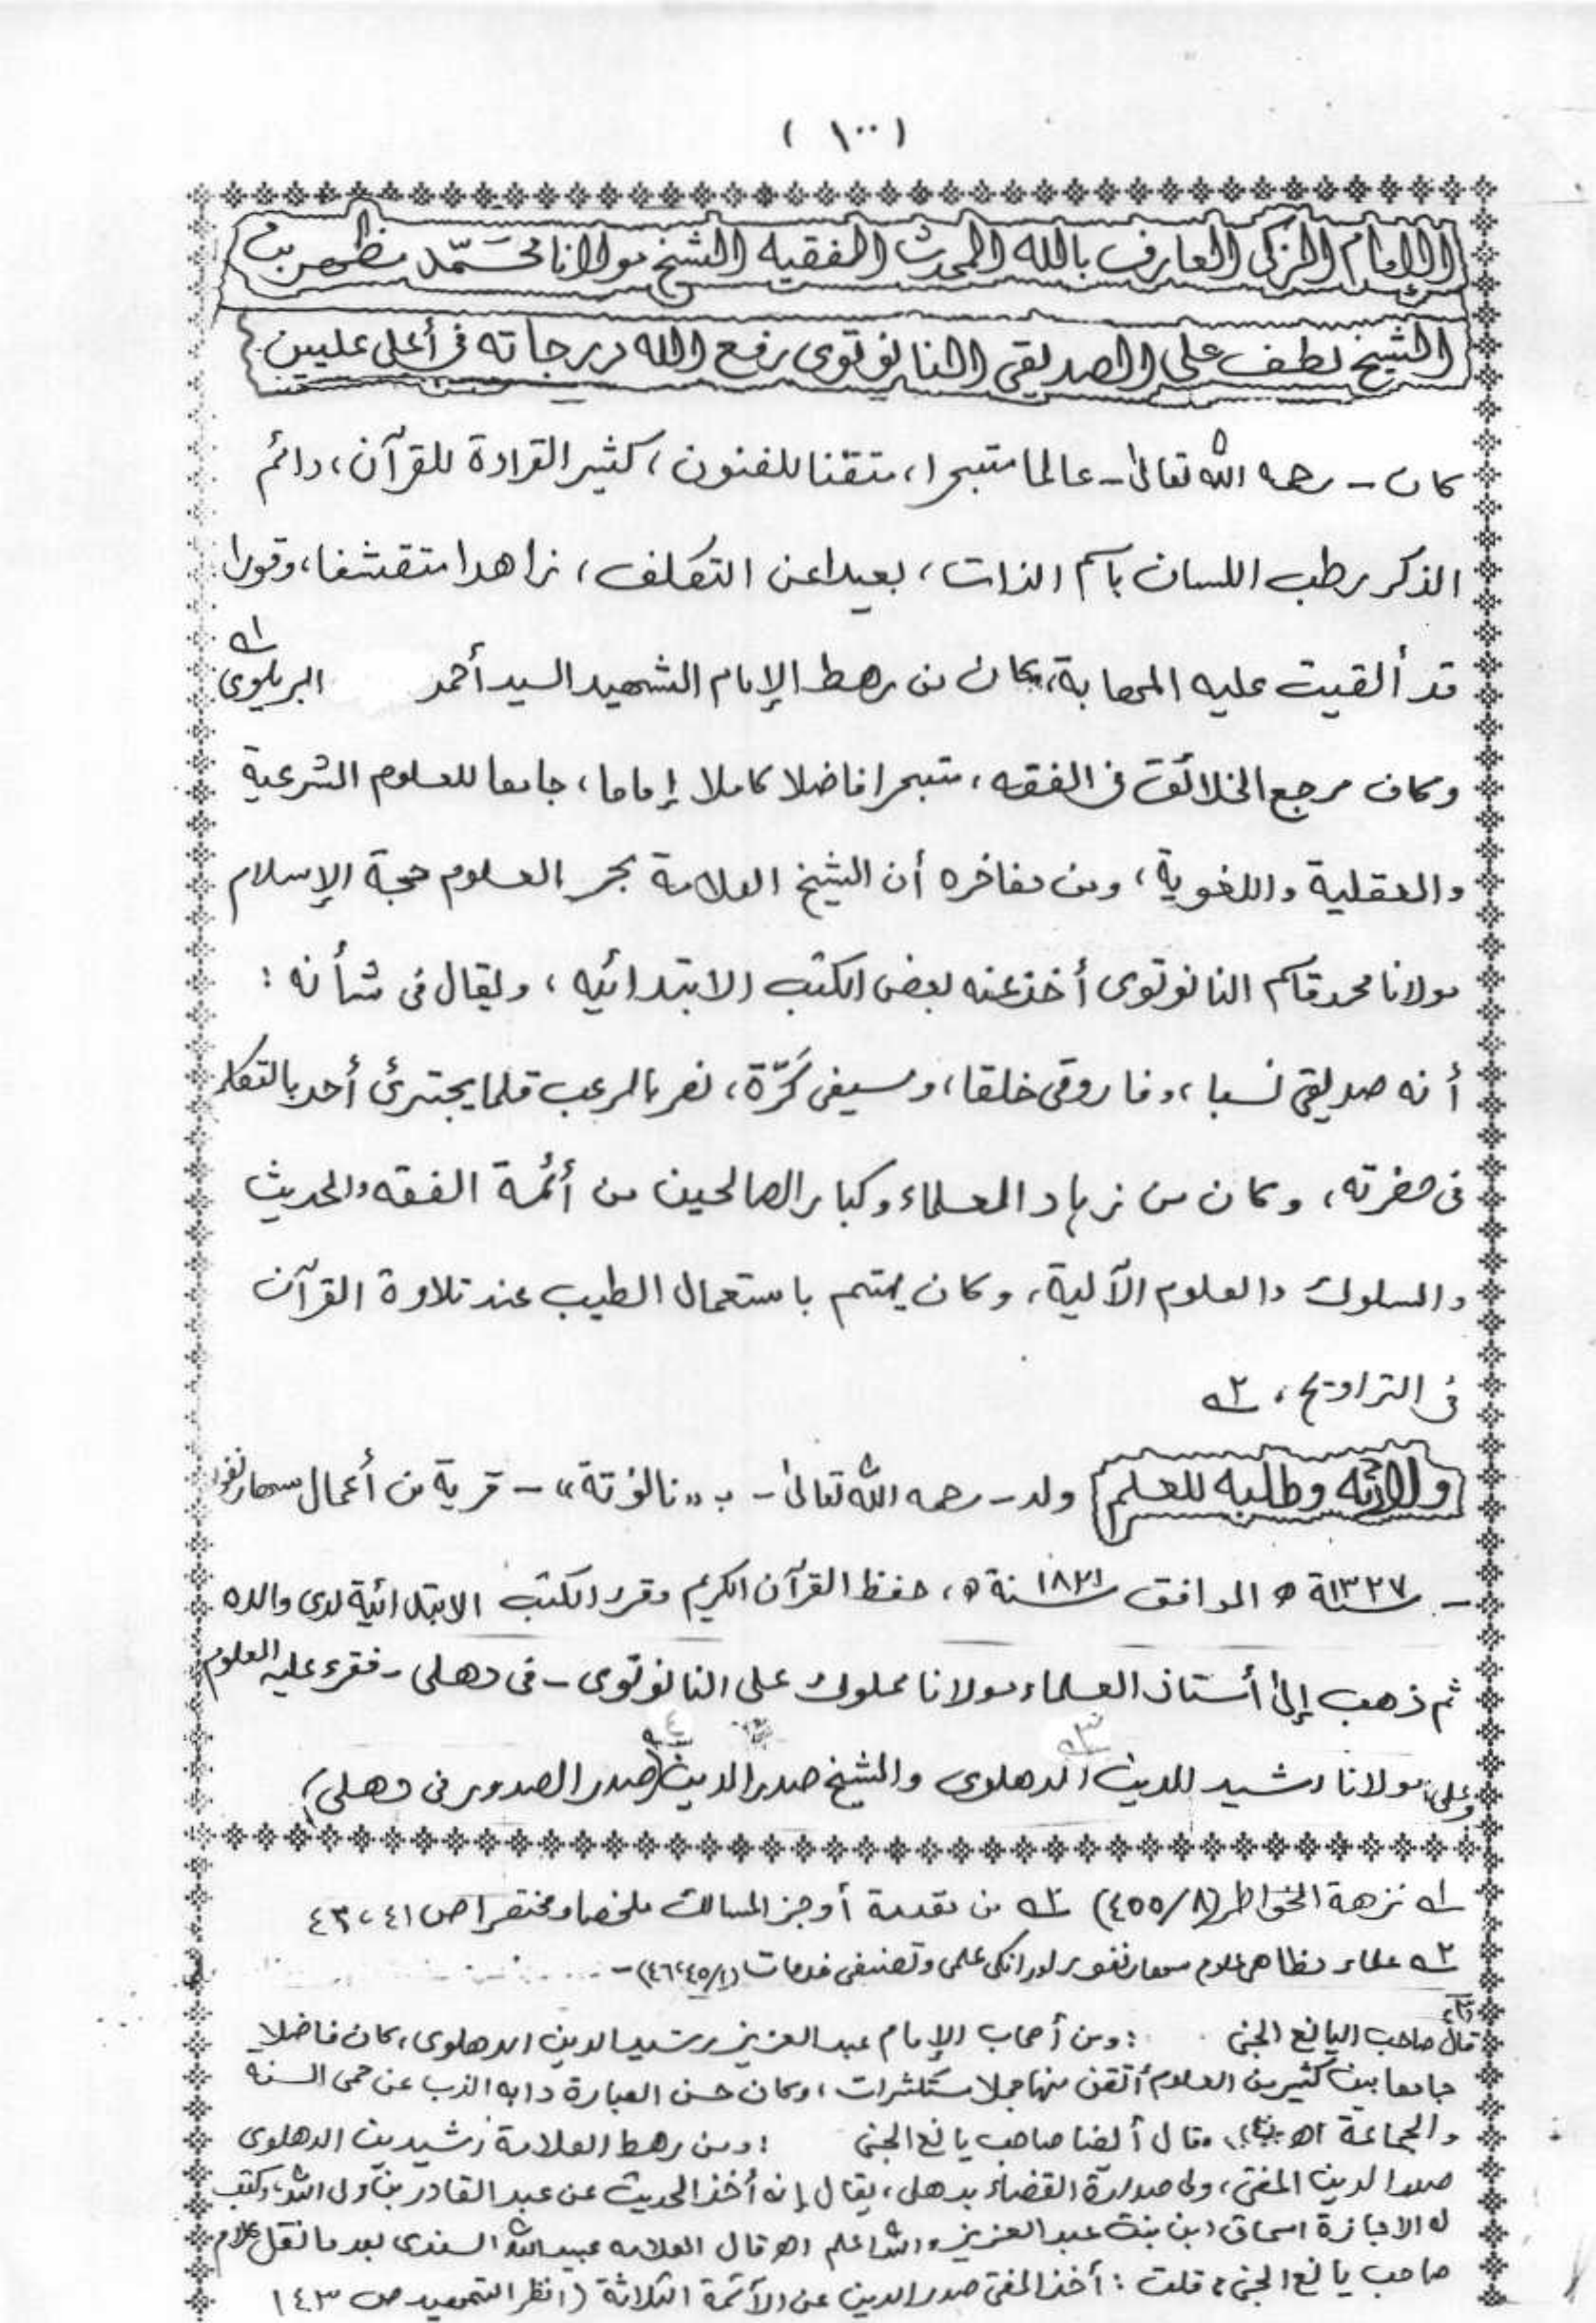 ( ١٠٠ )
الإمام الزكى العارف بالله المحدث الفقيه الشيخ مولانا محَمّد مظهر بن
الشيخ لطف على الصديقى النانوتوى رفع الله درجاته فى أعلى عليين
كان - رحمه الله تعالىٰ - عالما متبحرا، متقنا للفنون، كثير القراءة للقرآن، دائم
الذكر رطب اللسان باسم الذات، بعيدا عن التكلف، زاهدا متقشفا، وقورا
قد ألقيت عليه المهابة، كان من رهط الإمام الشهيد السيد أحمد البريلوى ١ـه
وكان مرجع الخلائق فى الفقه، متبحرا فاضلا كاملا إماما، جامعا للعلوم الشرعية
والعقلية واللغوية، ومن مفاخره أن الشيخ العلامة بحر العلوم حجة الإسلام
مولانا محمد قاسم النانوتوى أخذ عنه بعض الكتب الابتدائيه، ويقال فى شأنه :
أنه صديقى نسبا، وفاروقى خلقا، وسيفى كَرّة، نصر بالرعب قلما يجترئ أحد بالتكلم
فى حضرته، وكان من زهاد العلماء وكبار الصالحين من أئمة الفقه والحديث
والسلوك والعلوم الآلية، وكان يهتم باستعمال الطيب عند تلاوة القرآن
فى التراويح، ٢ـه
ولادته وطلبه للعلم ولد - رحمه الله تعالىٰ - بـ «نانوتة» - قرية من أعمال سهارنفور
- ١٣٢٧ سنة ھ الموافق ١٨٢١ سنة ء، حفظ القرآن الكريم وقرء الكتب الابتدائية لدى والده
ثم ذهب إلىٰ أستاذ العلماء مولانا مملوك على النانوتوى - فى دهلى - فقرء عليه العلوم
وعلى مولانا رشيد الدين الدهلوى ٣ـه والشيخ صدر الدين ٤ـه (صدر الصدور فى دهلى)
١ـه نزهة الخواطر (٨/٤٥٥) ٢ـه من تقدمة أوجز المسالك ملخصا ومختصرا ص ٤١، ٤٣
٢ـه علماء مظاهر علوم سهارنفور اور انكى علمى وتصنيفى خدمات (١/٤٥، ٤٦) -
قال صاحب اليانع الجنى : ومن أصحاب الإمام عبد العزيز رشيد الدين الدهلوى، كان فاضلا
جامعا بين كثير من العلوم أتقن منها جملا مستكثرات، وكان حسن العبارة دابه الذب عن حمى السنه
والجماعة اھ، وقال أيضا صاحب يانع الجنى : ومن رهط العلامة رشيد بن الدهلوى
صدر الدين المفتى، ولى صدارة القضاء بدهلى، يقال إنه أخذ الحديث عن عبد القادر بن ولى الله، وكتب
له الاجازة اسحاق ابن بنت عبد العزيز والله اعلم اھ قال العلامه عبيد الله السندى بعد ما نقل كلام
صاحب يانع الجنى، قلت : أخذ المفتى صدر الدين عن الأئمة الثلاثة (انظر التمهيد ص ١٤٣